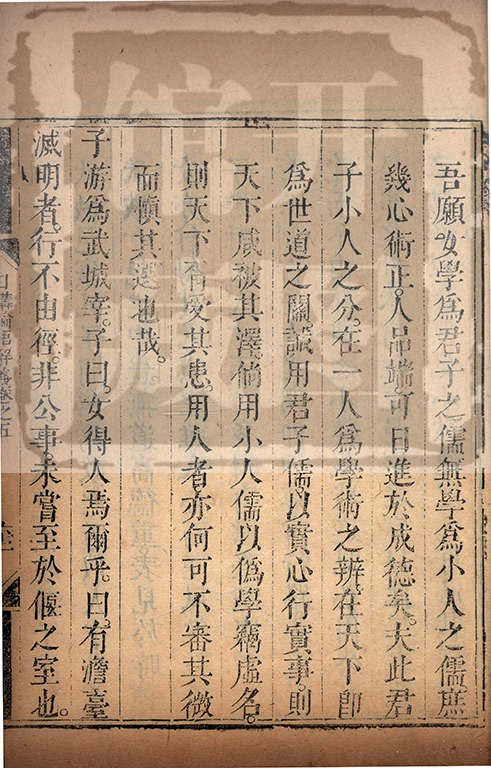 吾願女學爲君子之儒無學爲小人之儒庶
幾心術正。人品端。可日進於成德矣。夫此君
子小人之分。在一人爲學術之辨。在天下卽
爲世道之關。誠用君子儒。以實心行實事。則
天下咸被其澤。倘用小人儒以僞學竊虛名。
則天下胥受其患。用人者亦何可不審其微
而愼其選也哉。
子游爲武城宰。子曰。女得人焉爾乎。曰。有澹臺
滅明者。行不由徑。非公事。未嘗至於偃之室也。
日講論語解義卷之五